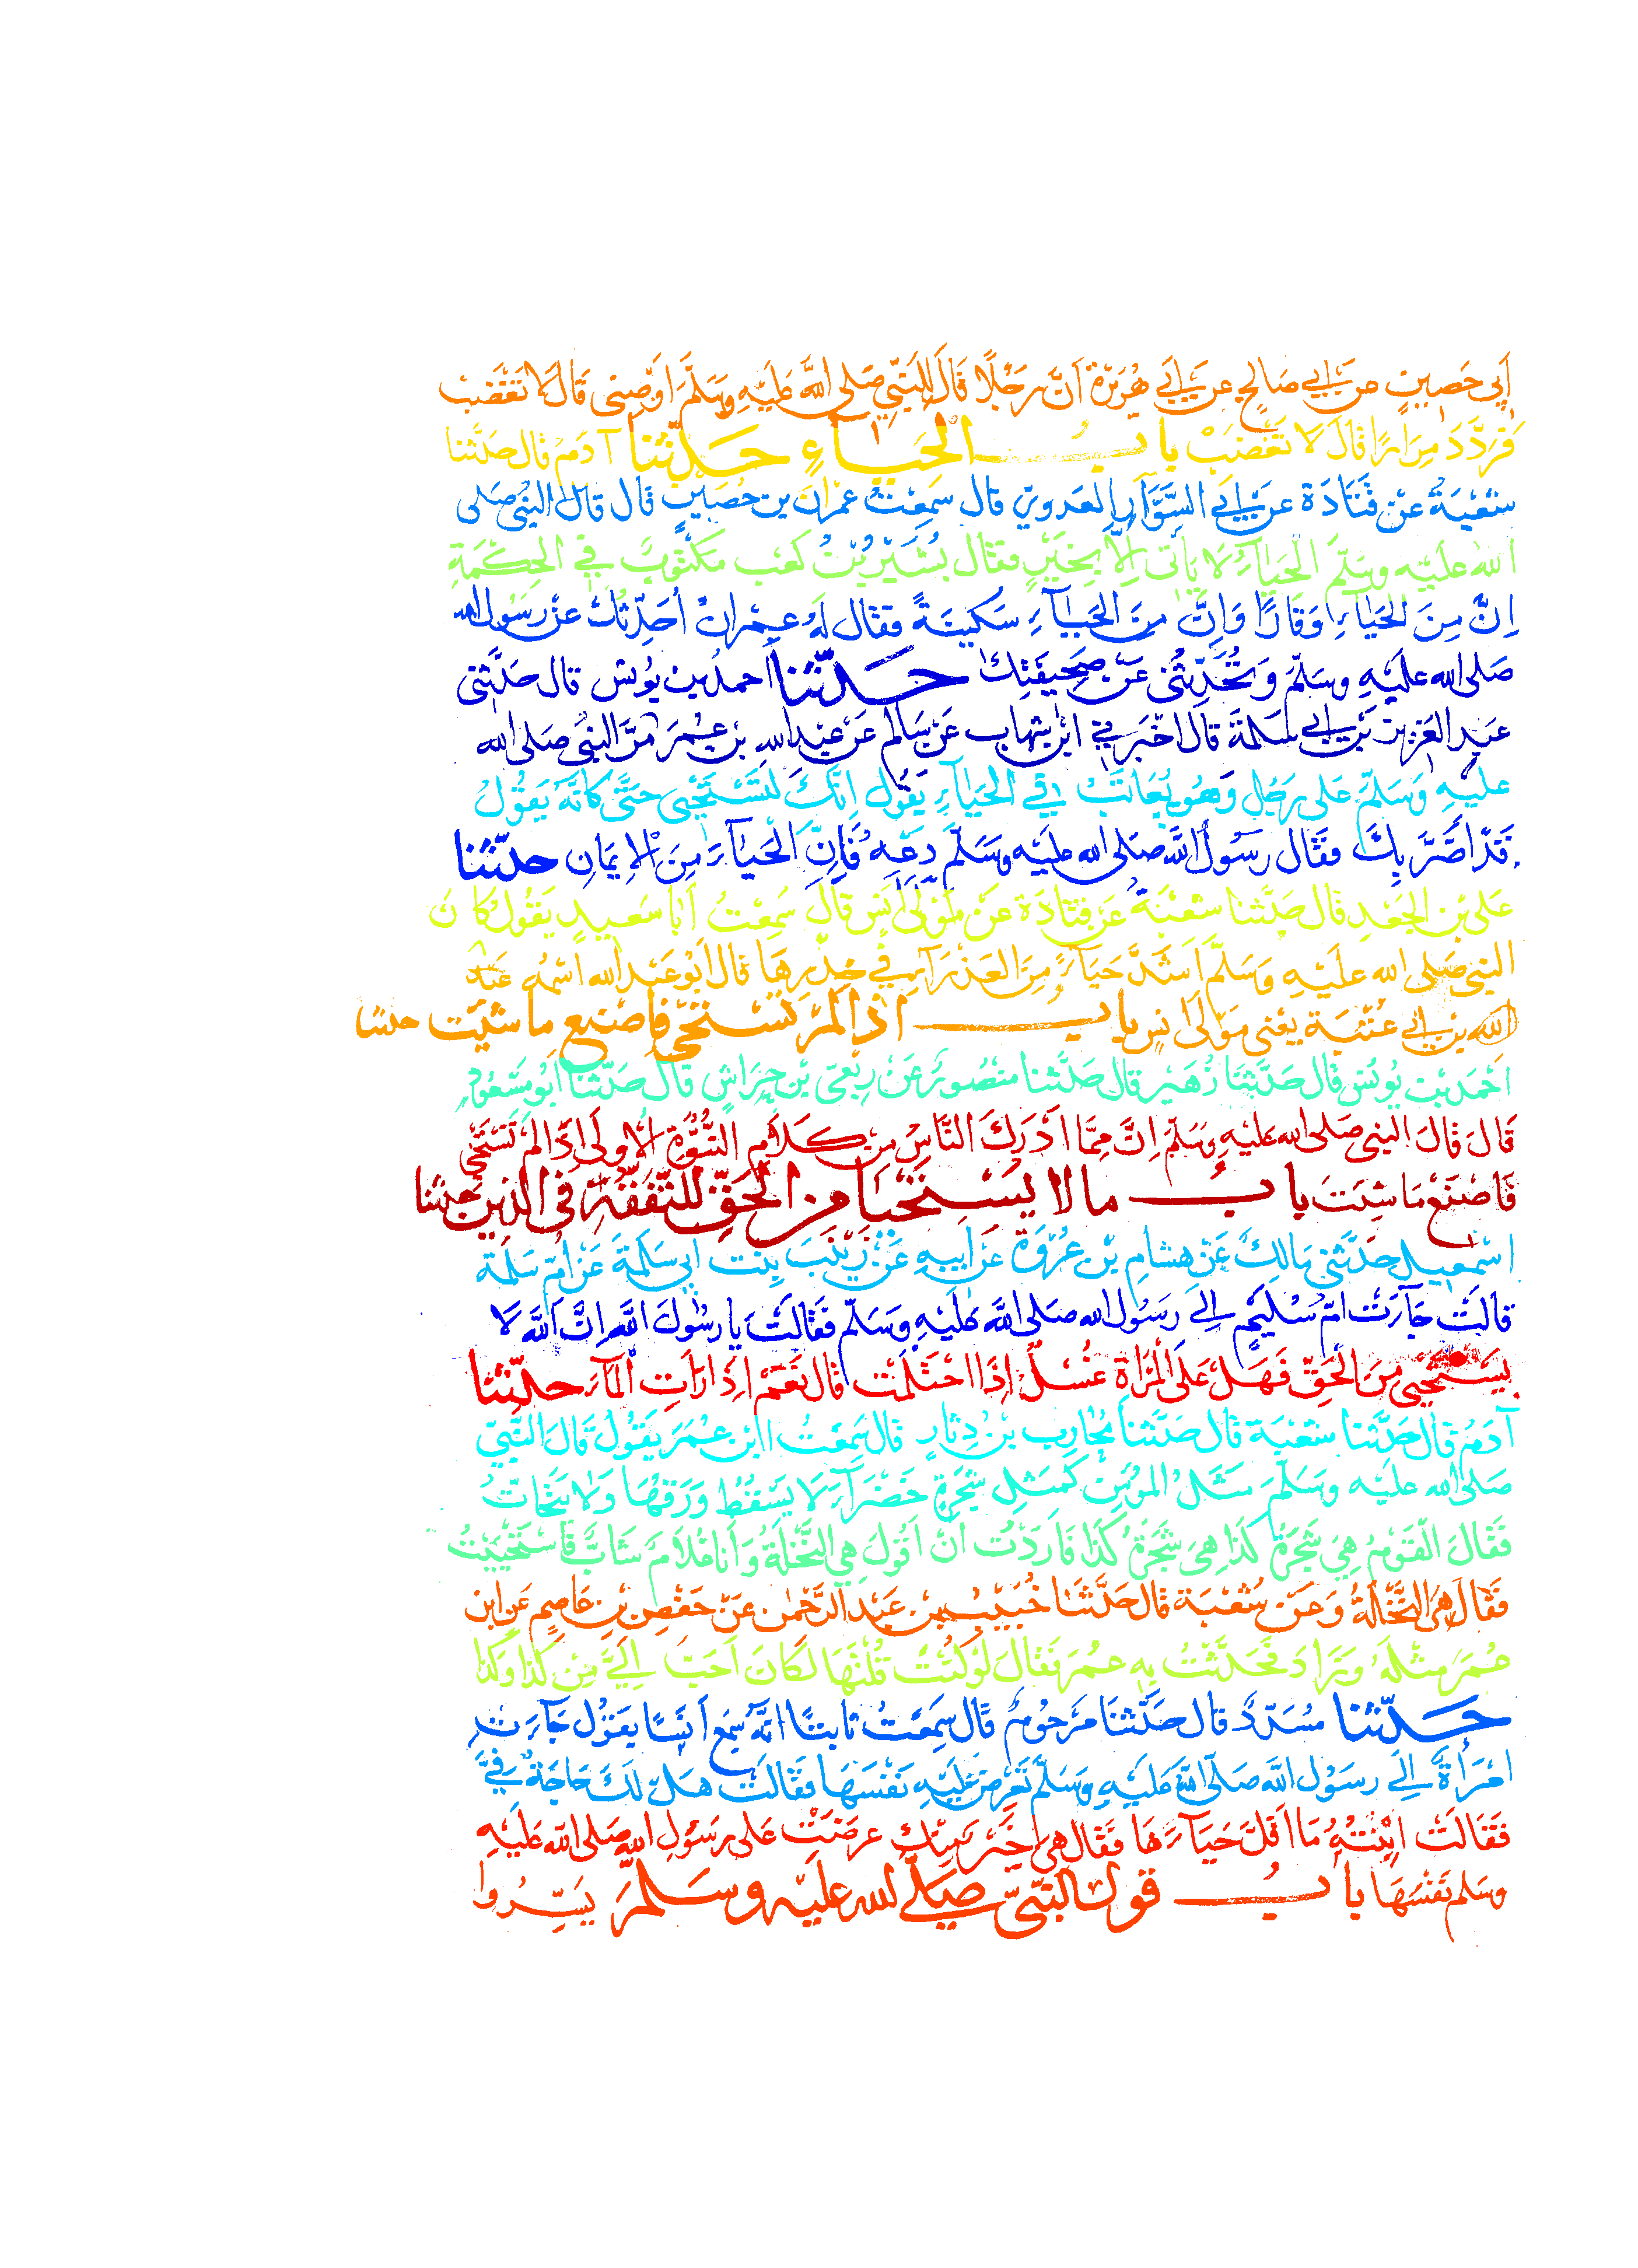 أَبِي حَصِينٍ عن أبي صَالِحٍ عن أبي هُرَيْرَةَ أنَّ رَجُلًا قَالَ لِلنَّبِيِّ صَلى اللَّه عَلَيْهِ وَسَلَّمَ اوْصِنِى قَالَ لَا تَغْضَبْ
فَرَدَّدَ مِرَارًا قَالَ لَا تَغْضَبْ بابُ الحَيَاءِ حَدَّثنا آدَمُ قال حَدَّثنا
شعْبَةُ عَنْ قَتَادَةَ عن أبي السَّوَّارِ العَدَويّ قال سَمِعْتُ عمْرانَ بن حُصَيْنٍ قال قال النبىُّ صَلى
الله عَلَيْهِ وسَلَّمَ الحَيَاءُ لَا يَأْتى إلَّا بِخَيْرٍ فقال بُشَيْرُ بْنُ كَعْبٍ مَكْتُوبٌ في الحِكْمَةِ
إنَّ مِنَ الحَيَاءِ وَقَارًا وَإنَّ مِنَ الحَيَاءِ سَكِينَةً فقال لَهُ عِمْرانُ أُحَدِّثُكَ عَنْ رَسُول الله
صَلى الله عليْهِ وسَلّم وَتُحَدِّثُنى عَنْ صَحِيفَتِكَ حَدّثنا احمدُ بن يُونس قال حدَّثنى
عَبْد العَزيز بْن أبي سَلمَةَ قال اخْبَرَني ابْنُ شِهَاب عَنْ سَالم عَنْ عَبْدِ اللهِ بن عُمَرَ مَرَّ النبىُّ صَلى الله
عليْهِ وَسَلّمَ عَلى رَجُلٍ وَهُو يُعَاتَبُ في الحَيَاءِ يَقُول إنَّكَ لَتَسْتَحْيِى حتَّى كَانَّهُ يَقُولُ
قَدْ أضَرَّ بِكَ فقَال رَسُولُ اللَّه صَلى الله عليْه وسَلَّمَ دَعْهُ فَإنَّ الحَيَاءَ مِنَ الإيمَانِ حدّثنا
عَلى بْن الجَعْدِ قال حَدَّثنا شعْبَةُ عَنْ قتادَةَ عَنْ مَوْلَى أنَس قال سَمِعْتُ أبَا سَعيدٍ يَقُولُ كَانَ
النبى صَلى الله عَلَيْهِ وَسَلَّمَ اشَدَّ حَيَاءً مِنَ العَذْرَاءِ فِي خِدْرِهَا قال أبُو عَبْد الله اسْمُهُ عَبْدُ
الله بن أبي عُتْبَة يعْنى مَوْلَى انَس باب اذا لَمْ تَسْتَحْى فَاصْنع ما شئت حدثنا
احْمَد بن يُونُس قال حَدَّثنَا زُهَيْر قال حَدَّثنا منْصُور عَنْ رِبْعىّ بْن حِرَاش قال حَدَّثنا أبُو مَسْعُودٍ
قَالَ قال النبى صَلى الله عَليْهِ وسَلّمَ إنَّ مِمَّا ادْرَكَ النَّاسُ مِنْ كَلَامِ النُّبُوَّةِ الأولَى إذَا لمْ تَسْتَحْى
فَاصْنَعْ مَا شِئتَ بابُ ما لا يُسْتَحْيَا مِنَ الحَقِّ لِلتَّفَقُّهِ فى الدّين حدثنا
اسْمعيل حدَّثَنى مَالِكٌ عَنْ هِشامِ بْن عُرْوَةَ عَنْ ابيهِ عَنْ زَيْنَبَ بِنْت ابى سَلَمَةَ عَنْ امّ سَلَمَة
قالتْ جَاءَتْ امّ سُلَيْمٍ إلى رَسُول الله صَلى اللَّه عَليْهِ وَسَلّم فَقَالَتْ يا رَسُولَ اللَّه إنَّ اللَّهَ لَا
يَسْتَحْيِى مِنَ الحَقِّ فَهَلْ عَلَى المَرْأةِ غُسْلٌ إذَا احْتَلَمَت قال نَعَمْ اذِا رَاَتِ المآءَ حدّثنا
آدَمُ قال حَدَّثنا شعْبَة قال حَدّثنا مُحَارِب بْن دِثَارٍ قال سَمِعْتُ ابن عُمَرَ يَقُولُ قالَ النَّبِيّ
صَلى الله عليْه وسَلَّمَ مَثَلُ المؤمِنِ كَمَثَلِ شَجَرَةٍ خَضْرَاءَ لَا يَسْقُطُ وَرَقُهَا وَلَا يَتَحَاتُّ
فَقَالَ القَوْمُ هِيَ شَجَرَةُ كَذَا هِىَ شَجَرَةُ كَذَا فَارَدْتُ انْ اقُولَ هِيَ النَّخْلَةُ وَأنَا غُلَامٌ شَابٌّ فَاسْتَحْيَيْتُ
فَقَالَ هِىَ النَّخْلَةُ وَعَنْ شُعْبَة قال حَدَّثَنَا خُبَيْبُ بْن عَبْد الرَّحْمٰن عَنْ حَفْصِ بْن عَاصِمٍ عَن ابن
عُمَرَ مِثْلَهُ وَزَادَ فَحَدَّثْتُ بِهِ عُمَرَ فَقَالَ لَوْ كُنْتَ قُلْتَهَا لَكَانَ أحَبَّ إلَيَّ مِنْ كَذا وَكَذا
حَدّثنا مُسَدَّدٌ قال حَدّثنَا مَرْحُومٌ قَال سَمِعْتُ ثابتًا انَّهُ سَمِعَ أنَسًا يَقُول جَاءَتِ
امْرَأةٌ إلى رسَوْل اللَّه صَلَّى اللَّه عَلَيْهِ وسَلّمَ تَعْرضُ عَلَيْهِ نَفْسَهَا فقَالَتْ هَلْ لَكَ حَاجَةٌ فِيَّ
فَقَالَتْ ابْنَتُهُ مَا اقَلَّ حَيَاءَهَا فَقَالَ هِىَ خَيْرٌ مِنْكِ عرضَتْ عَلى رَسُولِ الله صَلى الله عَليْهِ
وسَلم نَفْسَهَا بابُ قول النبىّ صَلّى الله عليْه وسَلّمَ يَسِّرُوا